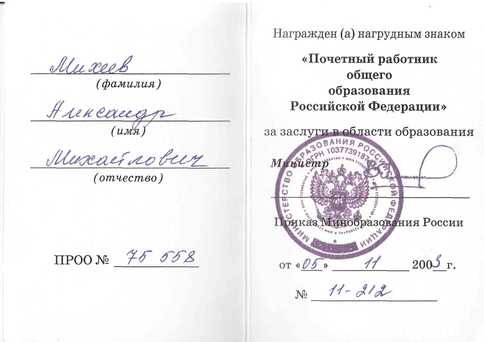 Михеев
(фамилия)
Александр
(имя)
Михайлович
(отчество)
ПРОО № 75 558
Награжден (а) нагрудным знаком
«Почетный работник
общего
образования
Российской Федерации»
за заслуги в области образования
Министр
МИНИСТЕРСТВО ОБРАЗОВАНИЯ РОССИЙСКОЙ ФЕДЕРАЦИИ
Приказ Минобразования России
от «05» 11 2003 г.
№ 11-212